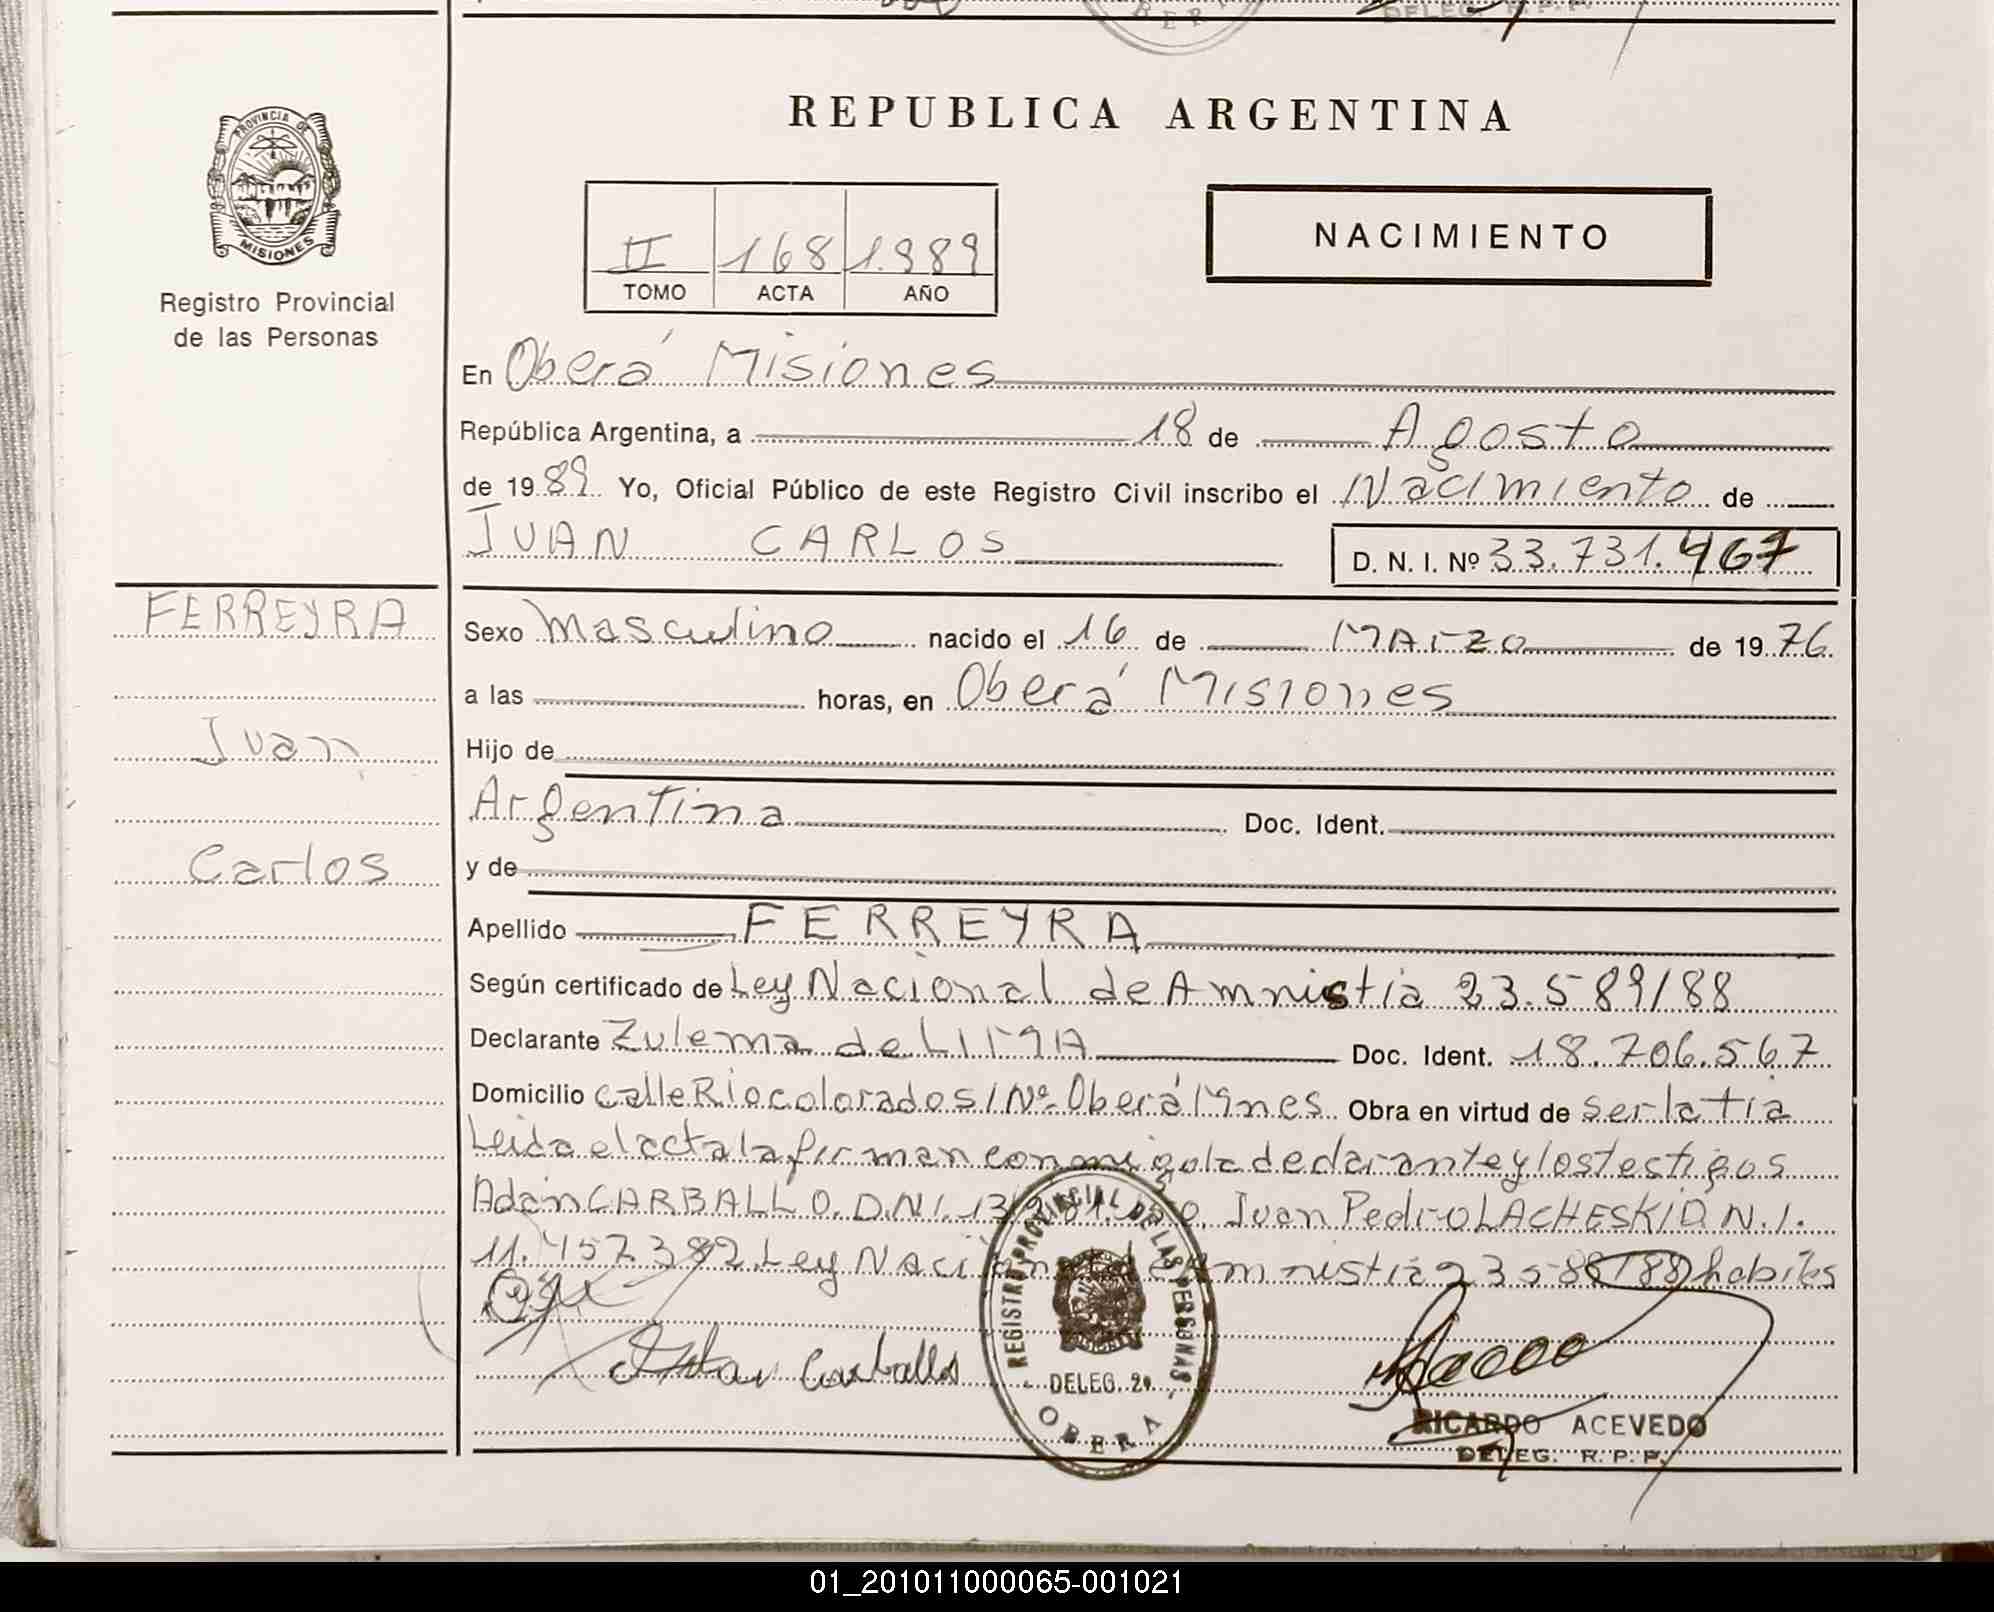 REPUBLICA ARGENTINA
PROVINCIA DE
MISIONES
Registro Provincial
de las Personas
II 168 1.989
TOMO ACTA AÑO
NACIMIENTO
En Oberá Misiones
República Argentina, a 18 de Agosto
de 1989 Yo, Oficial Público de este Registro Civil inscribo el Nacimiento de
JUAN CARLOS
D. N. I. Nº 33.731.467
FERREYRA
Juan
Carlos
Sexo Masculino nacido el 16 de Marzo de 1976.
a las horas, en Oberá Misiones
Hijo de
Argentina Doc. Ident.
y de
Apellido FERREYRA
Según certificado de Ley Nacional de Amnistia 23.589/88
Declarante Zulema de LIMA Doc. Ident. 18.706.567
Domicilio calle Rio colorado s/Nº Oberá Mnes. Obra en virtud de ser la tia
Leida el acta la firman conmigo la declarante y los testigos
Adan CARBALLO. D.N.I. Juan Pedro LACHESKI D.N.I.
11.457.382 Ley Nacional de Amnistia 23588/88 habiles
Carballo
REGISTRO PROVINCIAL DE LAS PERSONAS
DELEG. 29
OBERA
RICARDO ACEVEDO
DELEG. R. P. P.
01_201011000065-001021